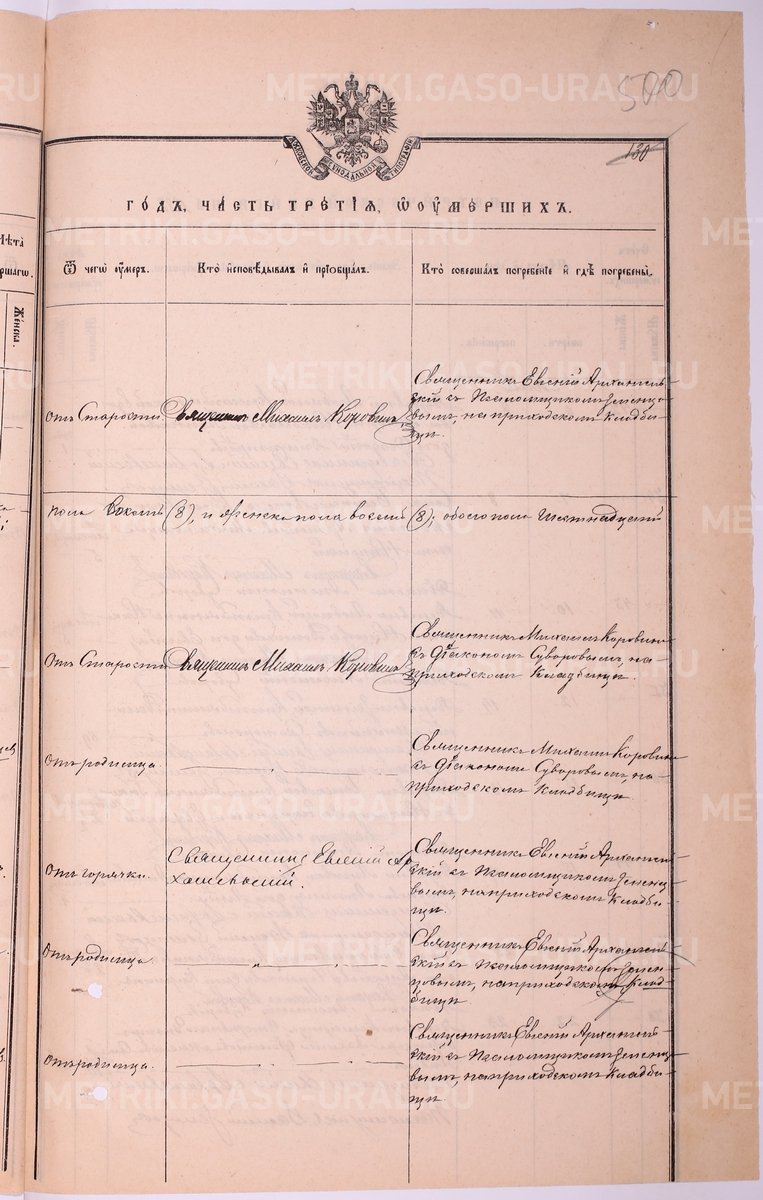 METRIKI.GASO-URAL.RU
500
130
МОСКОВСКОЙ СѴНОДАЛЬНОЙ ТИПОГРАФІИ
ГОДЪ, ЧАСТЬ ТРЕТІЯ, Ѿ ОУМЕРШИХЪ.
Лѣта
ршагѡ.
Женска.
Ѿ чегѡ оумеръ.
Кто исповѣдывалъ и прїобщалъ.
Кто совершалъ погребенїе и гдѣ погребены.
отъ Старости
Священникъ Михаилъ Коровинъ
Священникъ Евгеній Архангель-
скій съ Псаломщикомъ Земенцо-
вымъ, на приходскомъ Кладби-
щѣ.
пола восемь (8), и женска пола восемь (8); обоего пола шестнадцать
Отъ Старости
Священникъ Михаилъ Коровинъ
Священникъ Михаилъ Коровинъ
съ Діакономъ Суворовымъ, на
приходскомъ Кладбищѣ.
Отъ родимца.
Священникъ Михаилъ Коровинъ
съ Діакономъ Суворовымъ, на
приходскомъ Кладбищѣ.
Отъ горячки.
Священникъ Евгеній Ар
хангельскій.
Священникъ Евгеній Архангель-
скій съ Псаломщикомъ Земенцо-
вымъ, на приходскомъ Кладби-
щѣ.
Отъ родимца
Священникъ Евгеній Архангель-
скій съ Псаломщикомъ Земен-
цовымъ, на приходскомъ Клад-
бищѣ
Отъ родимца.
Священникъ Евгеній Архангель-
скій съ Псаломщикомъ Земенцо-
вымъ, на приходскомъ Кладби-
щѣ.